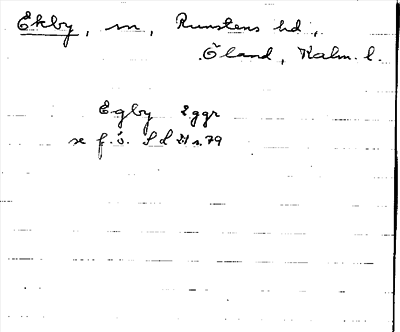 Ekby, sn, Runstens hd,
Öland, Kalm. l.
Egby 2 ggr
se f.ö. Sd 21 s. 79